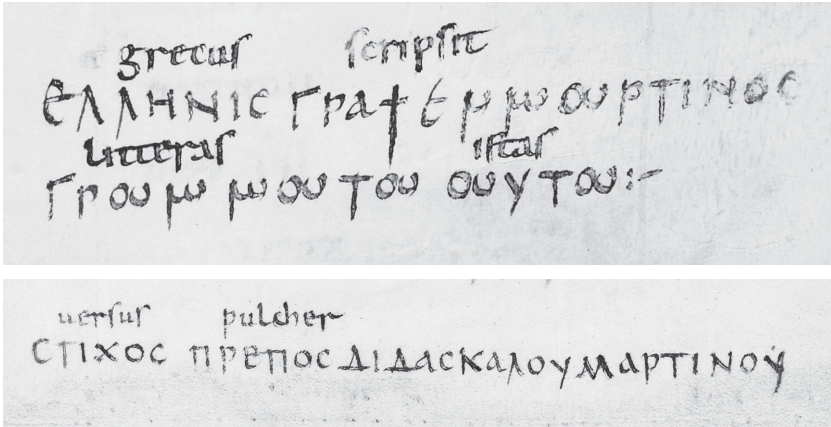 grecus scripsit
ЄΛΛΗΝΙC ΓΡΑΨЄ ΜΜΑΡΤΙΝΟC
litteras istas
ΓΡΑΜΜΑΤΑ ΑΥΤΑ:-
uersus pulcher
CΤΙΧΟC ΠΡЄΠΟC ΔΙΔΑCΚΑΛΟΥ ΜΑΡΤΙΝΟΥ